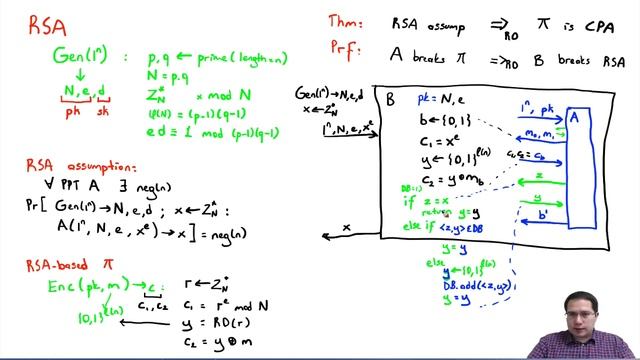 RSA
Gen(1ⁿ) : p,q ← prime(length=n)
↓ N = p.q
N,e,d Z*_N x mod N
pk sk φ(N) = (p-1)(q-1)
ed ≡ 1 mod (p-1)(q-1)
RSA assumption:
∀ PPT A ∃ negl(n)
Pr[ Gen(1ⁿ) → N,e,d ; x ← Z*_N :
A(1ⁿ, N, e, xᵉ) → x ] = negl(n)
RSA-based Π
Enc(pk,m) → c : r ← Z*_N
{0,1}^ℓ(n) c₁,c₂ c₁ = rᵉ mod N
y = RO(r)
c₂ = y ⊕ m
Thm: RSA assump ⇒RO Π is CPA
Prf: A breaks Π ⇒RO B breaks RSA
Gen(1ⁿ)→N,e,d
x ← Z*_N
1ⁿ,N,e,xᵉ
x
B pk = N, e
b ← {0,1}
c₁ = xᵉ
y ← {0,1}^ℓ(n)
c₂ = y ⊕ m_b
DB={}
if z = x
return y = y
else if <z,y> ∈ DB
y = y
else
y ← {0,1}^ℓ(n)
DB.add(<z,y>)
y = y
1ⁿ, pk
A
m₀, m₁
c₁,c₂ = c_b
z
y
b'